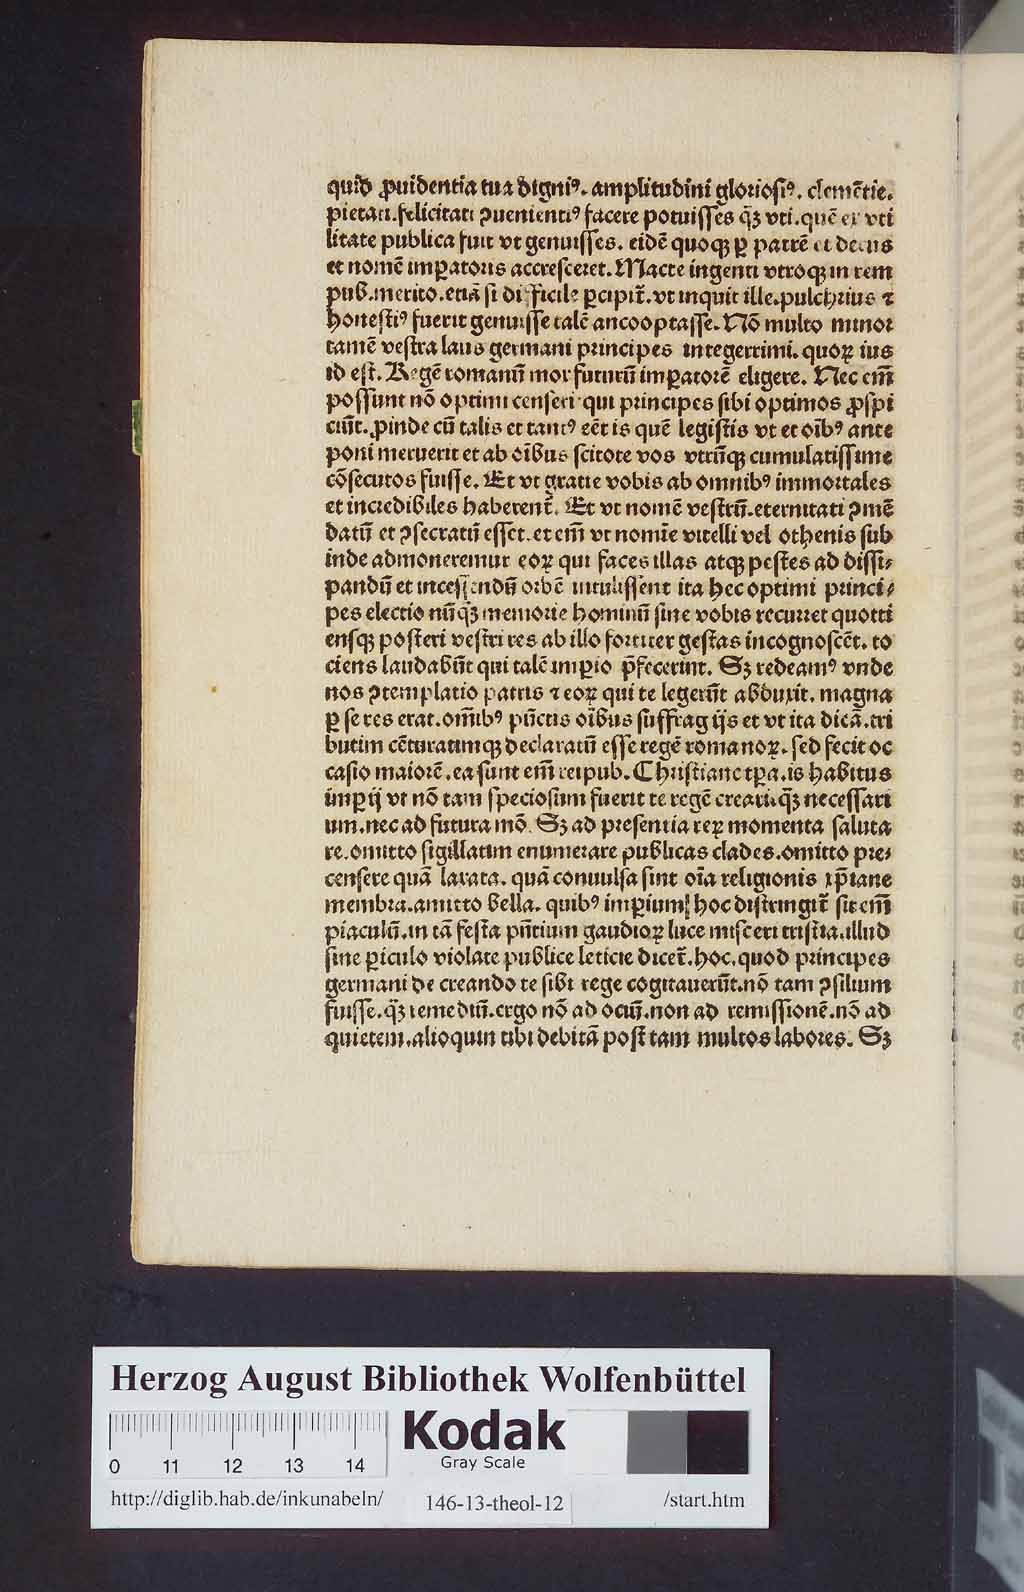 quid ꝓuidentia tua digniꝰ. amplitudini gloriosiꝰ. clemētie.
pietati. felicitati ꝯuenientiꝰ facere potuisses qȝ̄ vti. quē ex vti
litate publica fuit vt genuisses. eidē quoqꝫ ꝑ patrē et decus
et nomē imꝑatoris accresceret. Macte ingenti vtroqꝫ in rem
pub. merito. etiā si difficile ꝑcipit̄. vt inquit ille. pulchrius ⁊
honestiꝰ fuerit genuisse talē an cooptasse. Nō multo minor
tamē vestra laus germani principes integerrimi. quoꝝ ius
id est. Regē romanū mox futurū imꝑatorē eligere. Nec em̄
possunt nō optimi censeri qui principes sibi optimos ꝓspi
ciūt. ꝓinde cū talis et tantꝰ eēt is quē legistis vt et oībꝰ ante
poni meruerit et ab oībus scitote vos vtrūqꝫ cumulatissime
cōsecutos fuisse. Et vt gratie vobis ab omnibꝰ immortales
et incredibiles haberent̄. Et vt nomē vestrū. eternitati ꝯmē
datū et ꝯsecratū esset. et em̄ vt nomīe vitelli vel othenis sub
inde admoneremur eoꝝ qui faces illas atqꝫ pestes ad dissi⸗
pandū et incessendū orbē intulissent ita hec optimi princi⸗
pes electio nūqȝ̄ memorie hominū sine vobis recurret quotti
ensqꝫ posteri vestri res ab illo fortiter gestas incognoscēt. to
ciens laudabūt qui talē imꝑio p̄fecerint. Sꝫ redeamꝰ vnde
nos ꝯtemplatio patris ⁊ eoꝝ qui te legerūt abduxit. magna
ꝑ se res erat. om̄ibꝰ pūctis oībus suffragijs et vt ita dicā. tri
butim cēturatimqꝫ declaratū esse regē romanoꝝ. sed fecit oc
casio maiorē. ea sunt em̄ reipub. Christiane tꝑa. is habitus
imꝑij vt nō tam speciosum fuerit te regē creari qȝ̄ necessari
um. nec ad futura mō. Sꝫ ad presentia reꝝ momenta saluta
re. omitto sigillatim enumerare publicas clades. omitto pre⸗
censere quā lavata. quā conuulsa sint oīa religionis xp̄iane
membra. amitto bella. quibꝰ imꝑium hoc distringit̄ sit em̄
piaculū. in tā festa pn̄tium gaudioꝝ luce misceri tristia. illud
sine ꝑiculo violate publice leticie dicet̄. hoc. quod principes
germani de creando te sibi rege cogitauerūt. nō tam ꝯsilium
fuisse. qȝ̄ remediū. ergo nō ad ociū. non ad remissionē. nō ad
quietem. alioquin tibi debitā post tam multos labores. Sꝫ
Herzog August Bibliothek Wolfenbüttel
Kodak
Gray Scale
0 11 12 13 14
http://diglib.hab.de/inkunabeln/ 146-13-theol-12 /start.htm